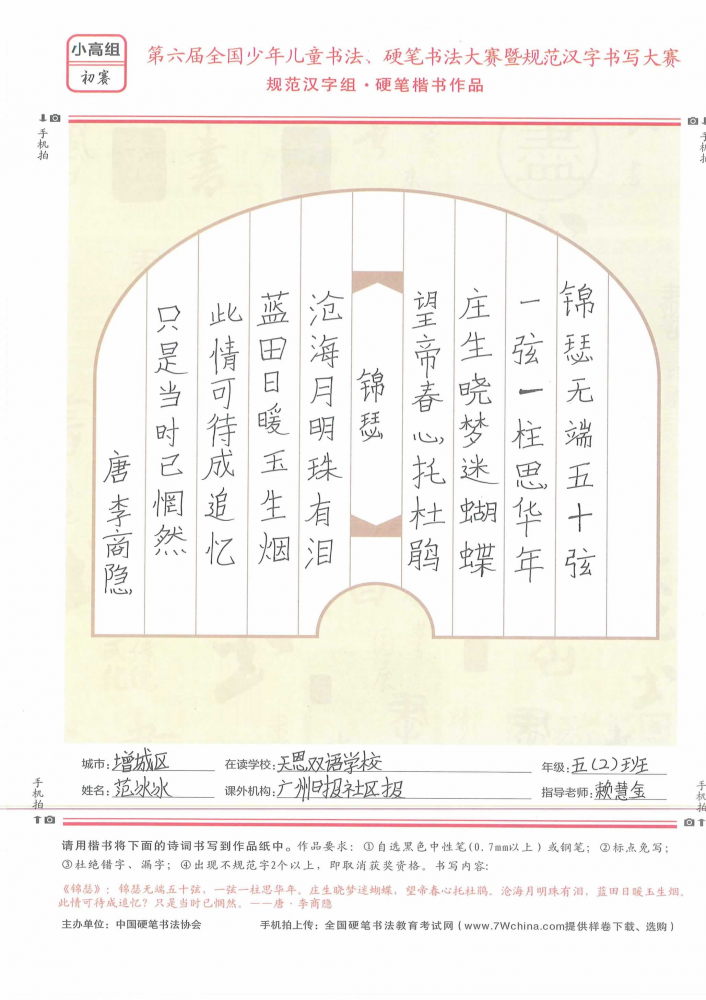 小高组
初赛
第六届全国少年儿童书法、硬笔书法大赛暨规范汉字书写大赛
规范汉字组·硬笔楷书作品
手机拍
手机拍
锦瑟无端五十弦
一弦一柱思华年
庄生晓梦迷蝴蝶
望帝春心托杜鹃
锦瑟
沧海月明珠有泪
蓝田日暖玉生烟
此情可待成追忆
只是当时已惘然
唐 李商隐
城市:增城区 在读学校:天恩双语学校 年级:五(2)班
姓名:范冰冰 课外机构:广州日报社区报 指导老师:赖慧金
手机拍
手机拍
请用楷书将下面的诗词书写到作品纸中。作品要求:①自选黑色中性笔(0.7mm以上)或钢笔;②标点免写;
③杜绝错字、漏字;④出现不规范字2个以上,即取消获奖资格。书写内容:
《锦瑟》:锦瑟无端五十弦,一弦一柱思华年。庄生晓梦迷蝴蝶,望帝春心托杜鹃。沧海月明珠有泪,蓝田日暖玉生烟。
此情可待成追忆?只是当时已惘然。——唐·李商隐
主办单位:中国硬笔书法协会 手机拍上传:全国硬笔书法教育考试网(www.7Wchina.com提供样卷下载、选购)